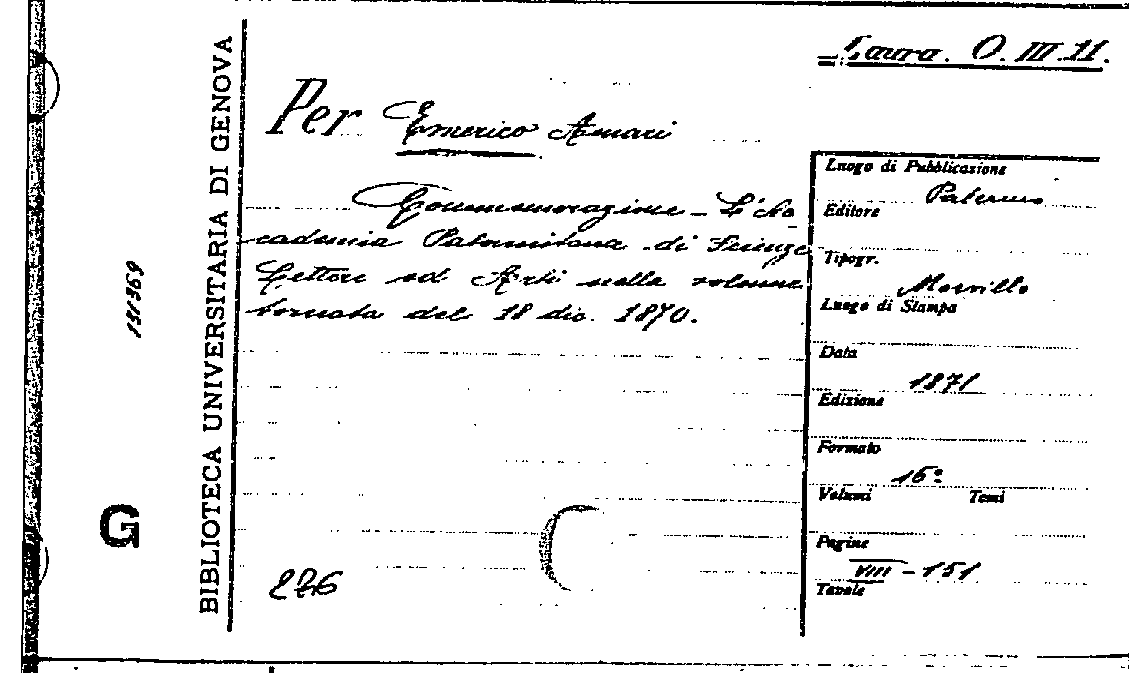 Laura. O. III. 11.
Per Emerico Amari
Commemorazione - L'Ac
cademia Palermitana di Scienze
Lettere ed Arti nella solenne
tornata del 18 dic. 1870.
226
BIBLIOTECA UNIVERSITARIA DI GENOVA
131369
G
Luogo di Pubblicazione
Palermo
Editore
Tipogr.
Morvillo
Luogo di Stampa
Data
1871
Edizione
Formato
16°
Volumi Tomi
Pagine
VIII - 151
Tavole